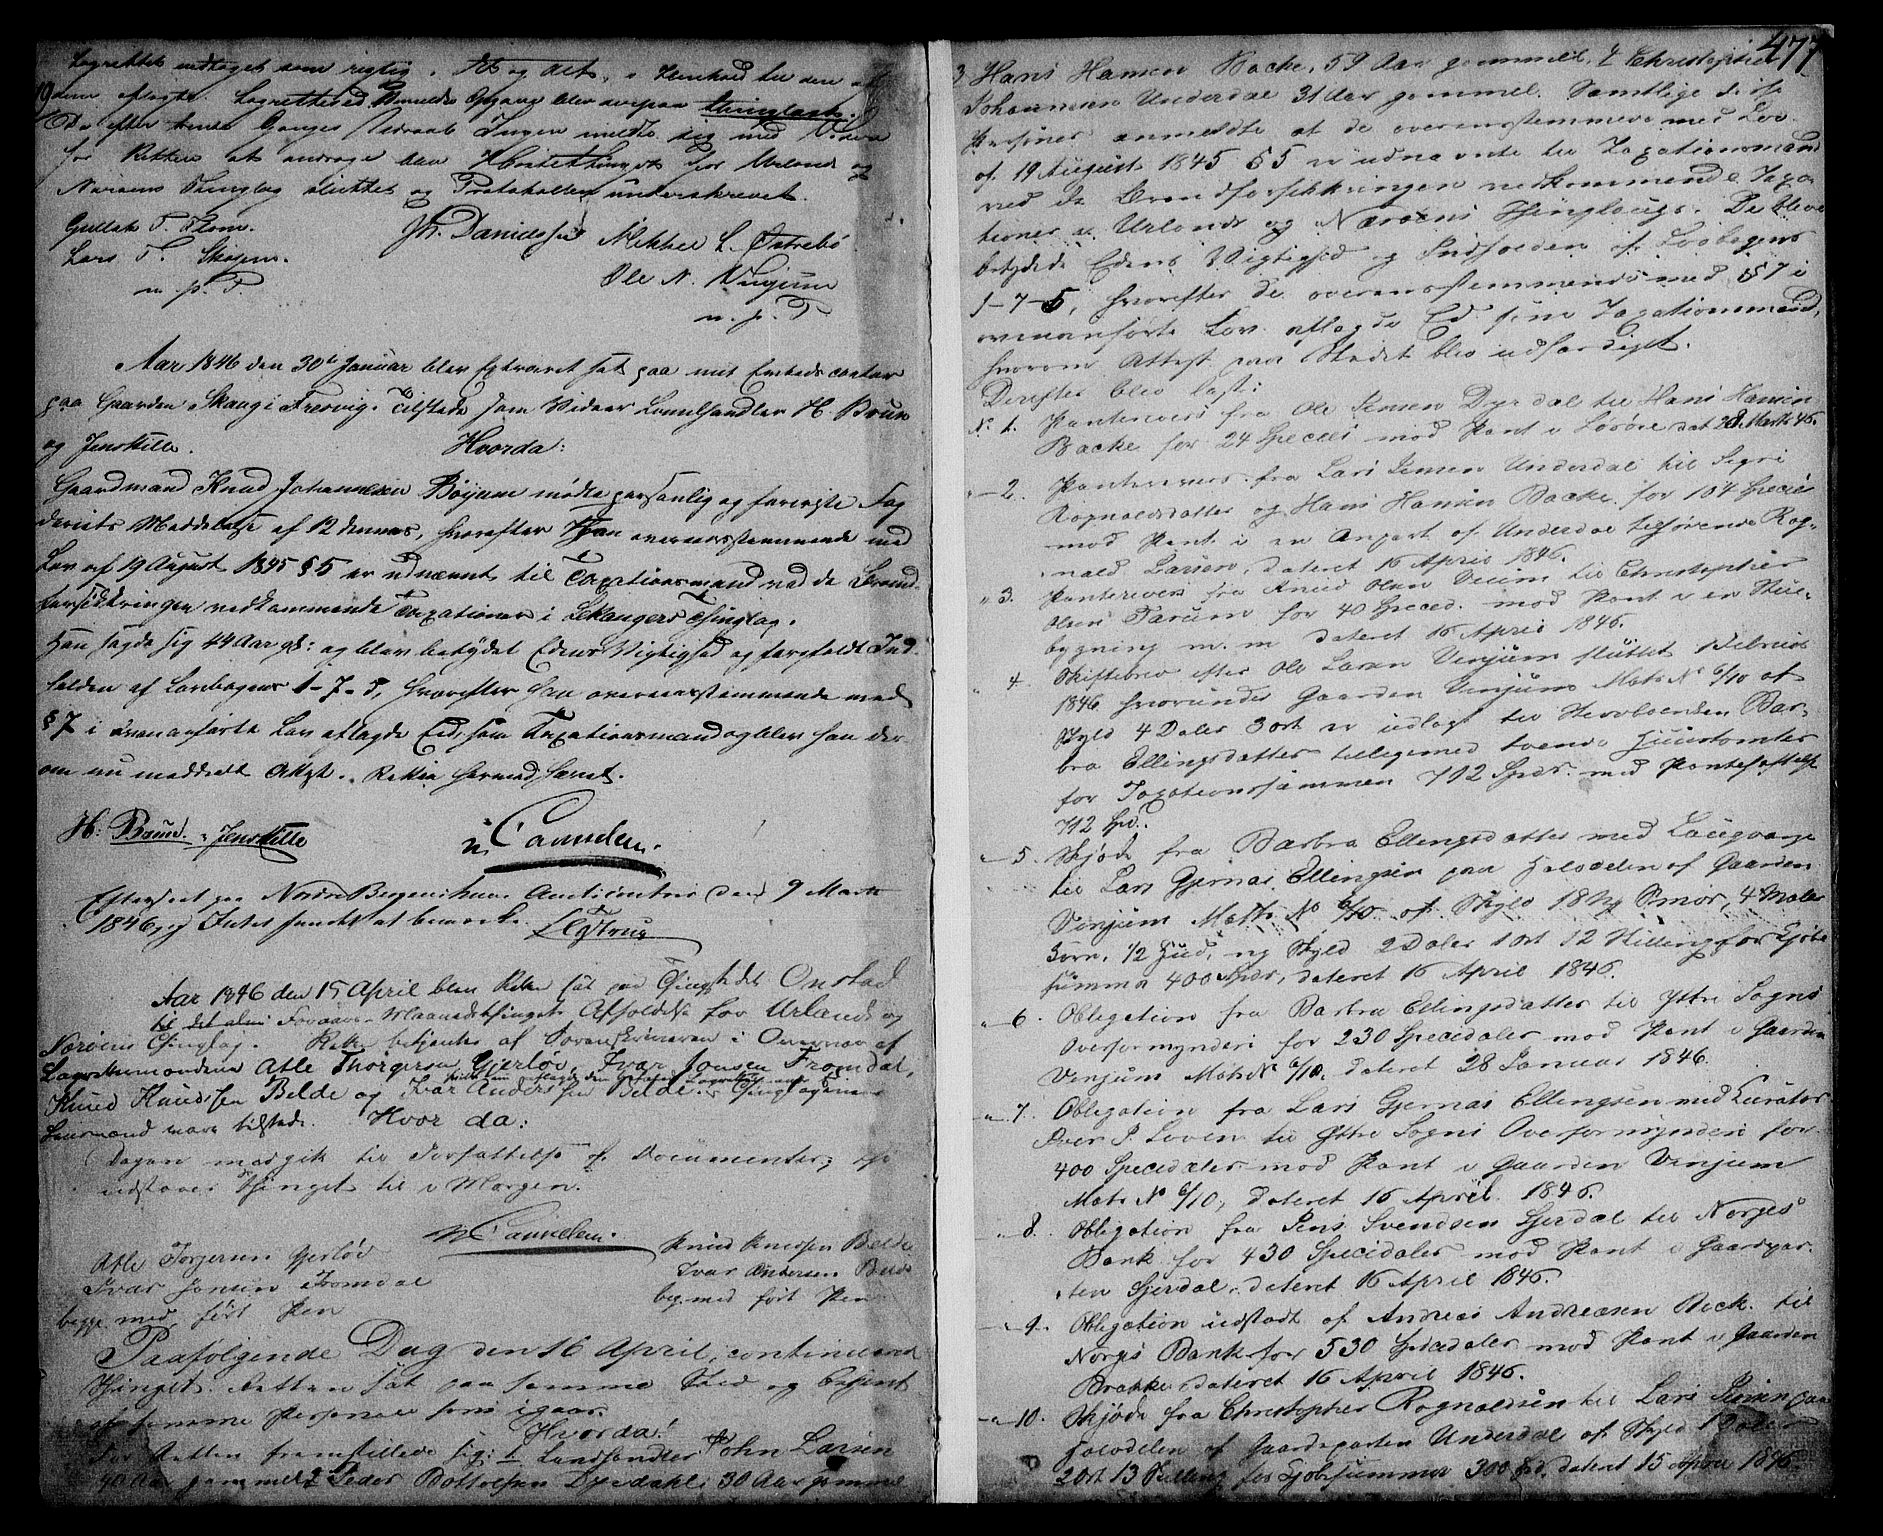 Lagrettet modtaget som rigtig.
dem aflagte. Lagrettesed
Da efter trende Ganges Udraab Ingen meldte sig med Videre
for Retten at andrage blev Høsttethinget for Urlands og
Nærøens Thinglag sluttet og Protokollen underskrevet.
Gullak T. Flom. Mikkel L. Østrebø
Lars T. Skajem. Ole N. Vinjum
m. p. P. m. p. P
Aar 1846 den 30te Januar blev Extraret sat paa mit Embedscontoir
paa Gaarden Skaug i Fresvig. Tilstede som Vidner Lensmand H. Brun
og Jenskille. Hvorda:
Gaardmand Knud Johannesen Böyum mödte personlig og foreviste Fog
deriets Meddelelse af 12 dennes, hvorefter Han overeensstemmende med
Lov af 19 August 1845 § 5 er udnævnt til Taxationsmand ved de Brand-
forsikringen vedkommende Taxationer i Lekangers Thinglag.
Han sagde sig 44 Aar gl: og blev betydet Edens Vigtighed og foreholdt Ind-
holden af Lovbogens 1-7-5, hvorefter han overeensstemmende med
§ 7 i ovenanförte Lov aflagde Ed, som Taxationsmand og blev han der-
om nu meddeelt Attest. Retten hermed hævet.
H: Brun. Jenskille
Efterseet paa Nordre Bergenhuus Amtscontoir den 9 Marts
1846, og Intet fundet at bemærke.
Aar 1846 den 15 April blev Retten sat paa Thingstedet Onstad
til det alm Foraars-Maanedsthingets Afholdelse for Urlands og
Nærøens Thinglag. Retten betjentes af Sorenskriveren i Overvær af
Lagrettemændene Atle Thorgersen Gjerløv, Ivar Jonsen Fromdal,
Knud Knudsen Belde og Ivar Andersen Belde. Thinglagenes
Lensmænd vare tilstede. Hvor da:
Dagen medgik til Forfattelse af Documenter, og
udstaaer Thinget til i Morgen.
Atle Torgersen Gjerløv Knud Knudsen Belde
Ivar Jonsen Fromdal Ivar Andersen Belde
begge med ført Pen beg. med ført Pen
Paafølgende Dag den 16 April, continuered
Thinget. Retten sat paa samme Sted og betjent
af samme Personale som igaar.
Hvorda!
For Retten fremstillede sig: 1 Landhandler John Larsen
40 Aar gammel 2 Peder Bottolfsen Dyrdahl 30 Aar gammel
477
3 Hans Hansen Backe, 59 Aar gammel, 4 Christopher
Johannesen Underdal 31 Aar gammel. Samtlige disse
Personer anmeldte at de overensstemmende med Lov
af 19 August 1845 § 5 er udnævnte til Taxationsmænd
ved de Brandforsikkringen vedkommende Taxa-
tioner i Urlands og Nærøens Thinglaug. De bleve
betydede Edens Vigtighed og Indholden af Lovbogens
1-7-5, hvorefter de overensstemmende med § 7 i
ovenanførte Lov aflagde Ed som Taxationsmænd,
hvorom Attest paa Stedet blev udfærdiget.
Derefter blev læst:
No 1. Pantrevers fra Ole Jensen Dyrdal til Hans Hansen
Backe for 24 Specdlr mod Pant i Løsøre dat 28 Marts 46.
" - 2. Pantrevers fra Lars Jensen Underdal til Segri
Rognaldsdatter og Hans Hansen Backe for 184 Specdlr
mod Pant i en Anpart af Underdal tilhørende Rog-
nald Larsen, dateret 16 April 1846.
" 3. Pantrevers fra Knud Olsen Veum til Christopher
Olsen Tarum for 40 Specd. mod Pant i en Stue-
bygning m. m dateret 16 April 1846.
" 4. Skiftebrev efter Ole Larsen Venjum sluttet 1 Februar
1846 hvorunder Gaarden Venjum Matr No 6/10 af
Skyld 4 Daler 3 ort er udlagt til Hovedboenden Bar-
bra Ellingsdatter tilligemed tvende Huustomter
for Taxationssummen 712 Spdr. med Panteheftelse
712 Spd.
" - 5. Skjøde fra Barbra Ellingsdatter med Laugværge
til Lars Gjernas Ellingsen paa Halvdelen af Gaarden
Venjum Matr No 6/10 af Skyld Smør, 4 Mæler
Korn, 1/2 Hud, ny Skyld 2 Daler 1 ort 12 Skilling for Kjøbe
summa 400 Spdr, dateret 16 April 1846.
" - 6. Obligation fra Barbra Ellingsdatter til Yttre Sogns
Overformynderi for 230 Specidaler mod Pant i Gaarden
Venjum Matr No 6/10, dateret 28 Januar 1846.
" - 7. Obligation fra Lars Gjernas Ellingsen med Curator
Iver P. Loven til Yttre Sogns Overformynderi for
400 Specidaler mod Pant i Gaarden Venjum
Matr No 6/10, dateret 16 April 1846.
" 8. Obligation fra Jens Svendsen Gjerdal til Norges
Bank for 430 Specidaler mod Pant i Gaardpar-
ten Gjerdal, dateret 16 April 1846.
" 9. Obligation udstædt af Andreas Andreasen Beck til
Norges Bank for 530 Specidaler mod Pant i Gaarden
Brække dateret 16 April 1846.
" 10. Skjøde fra Christopher Rognaldsen til Lars Jensen paa
Halvdelen af Gaardsparten Underdal af Skyld 1 Daler
2 ort 13 Skilling for Kjøbesummen 300 Spd. dateret 15 April 1846